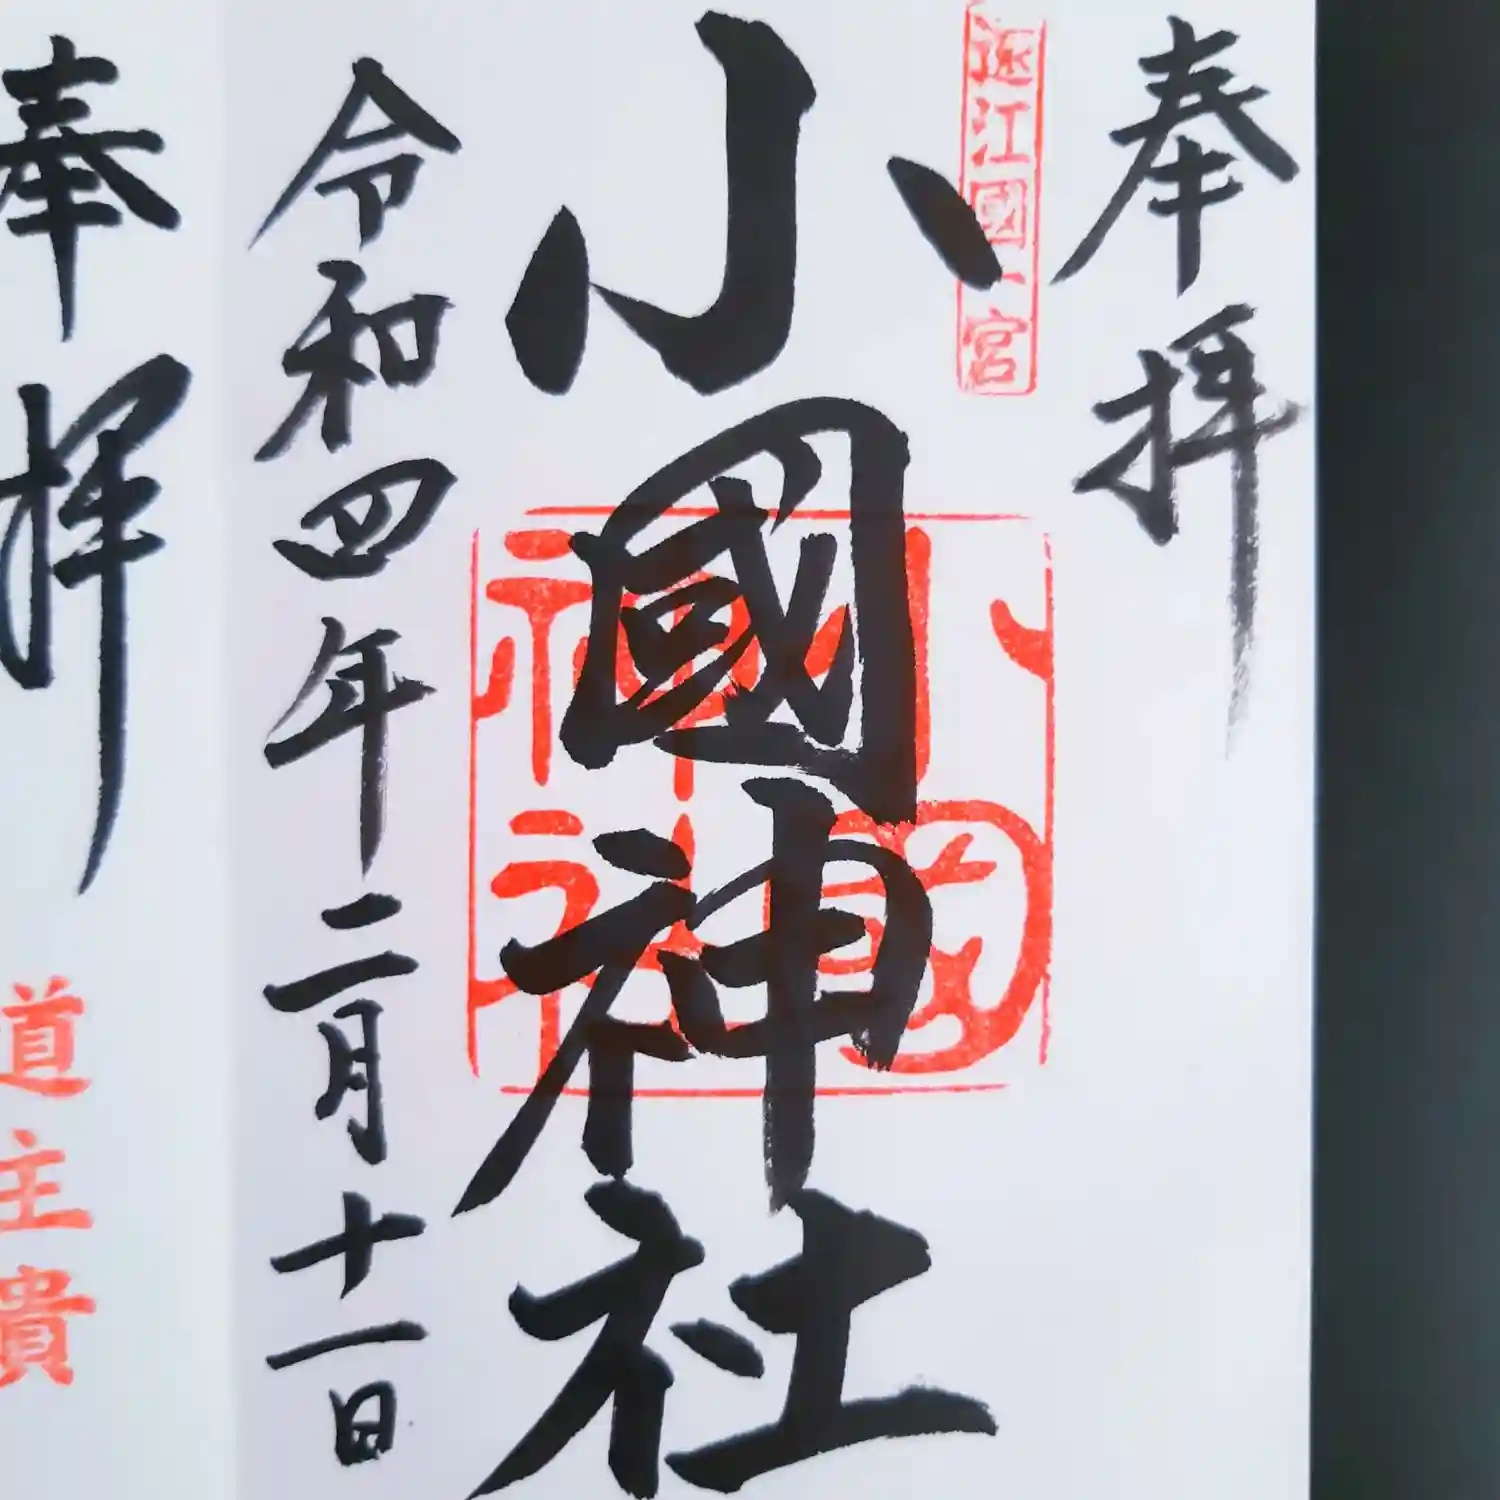 奉拝
遠江國一宮
小國神社
小國
神社
令和四年二月十一日
奉拝
道主貴